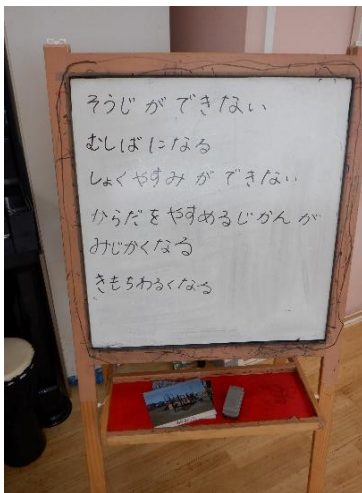 そうじができない
むしばになる
しょくやすみができない
からだをやすめるじかんが
みじかくなる
きもちわるくなる